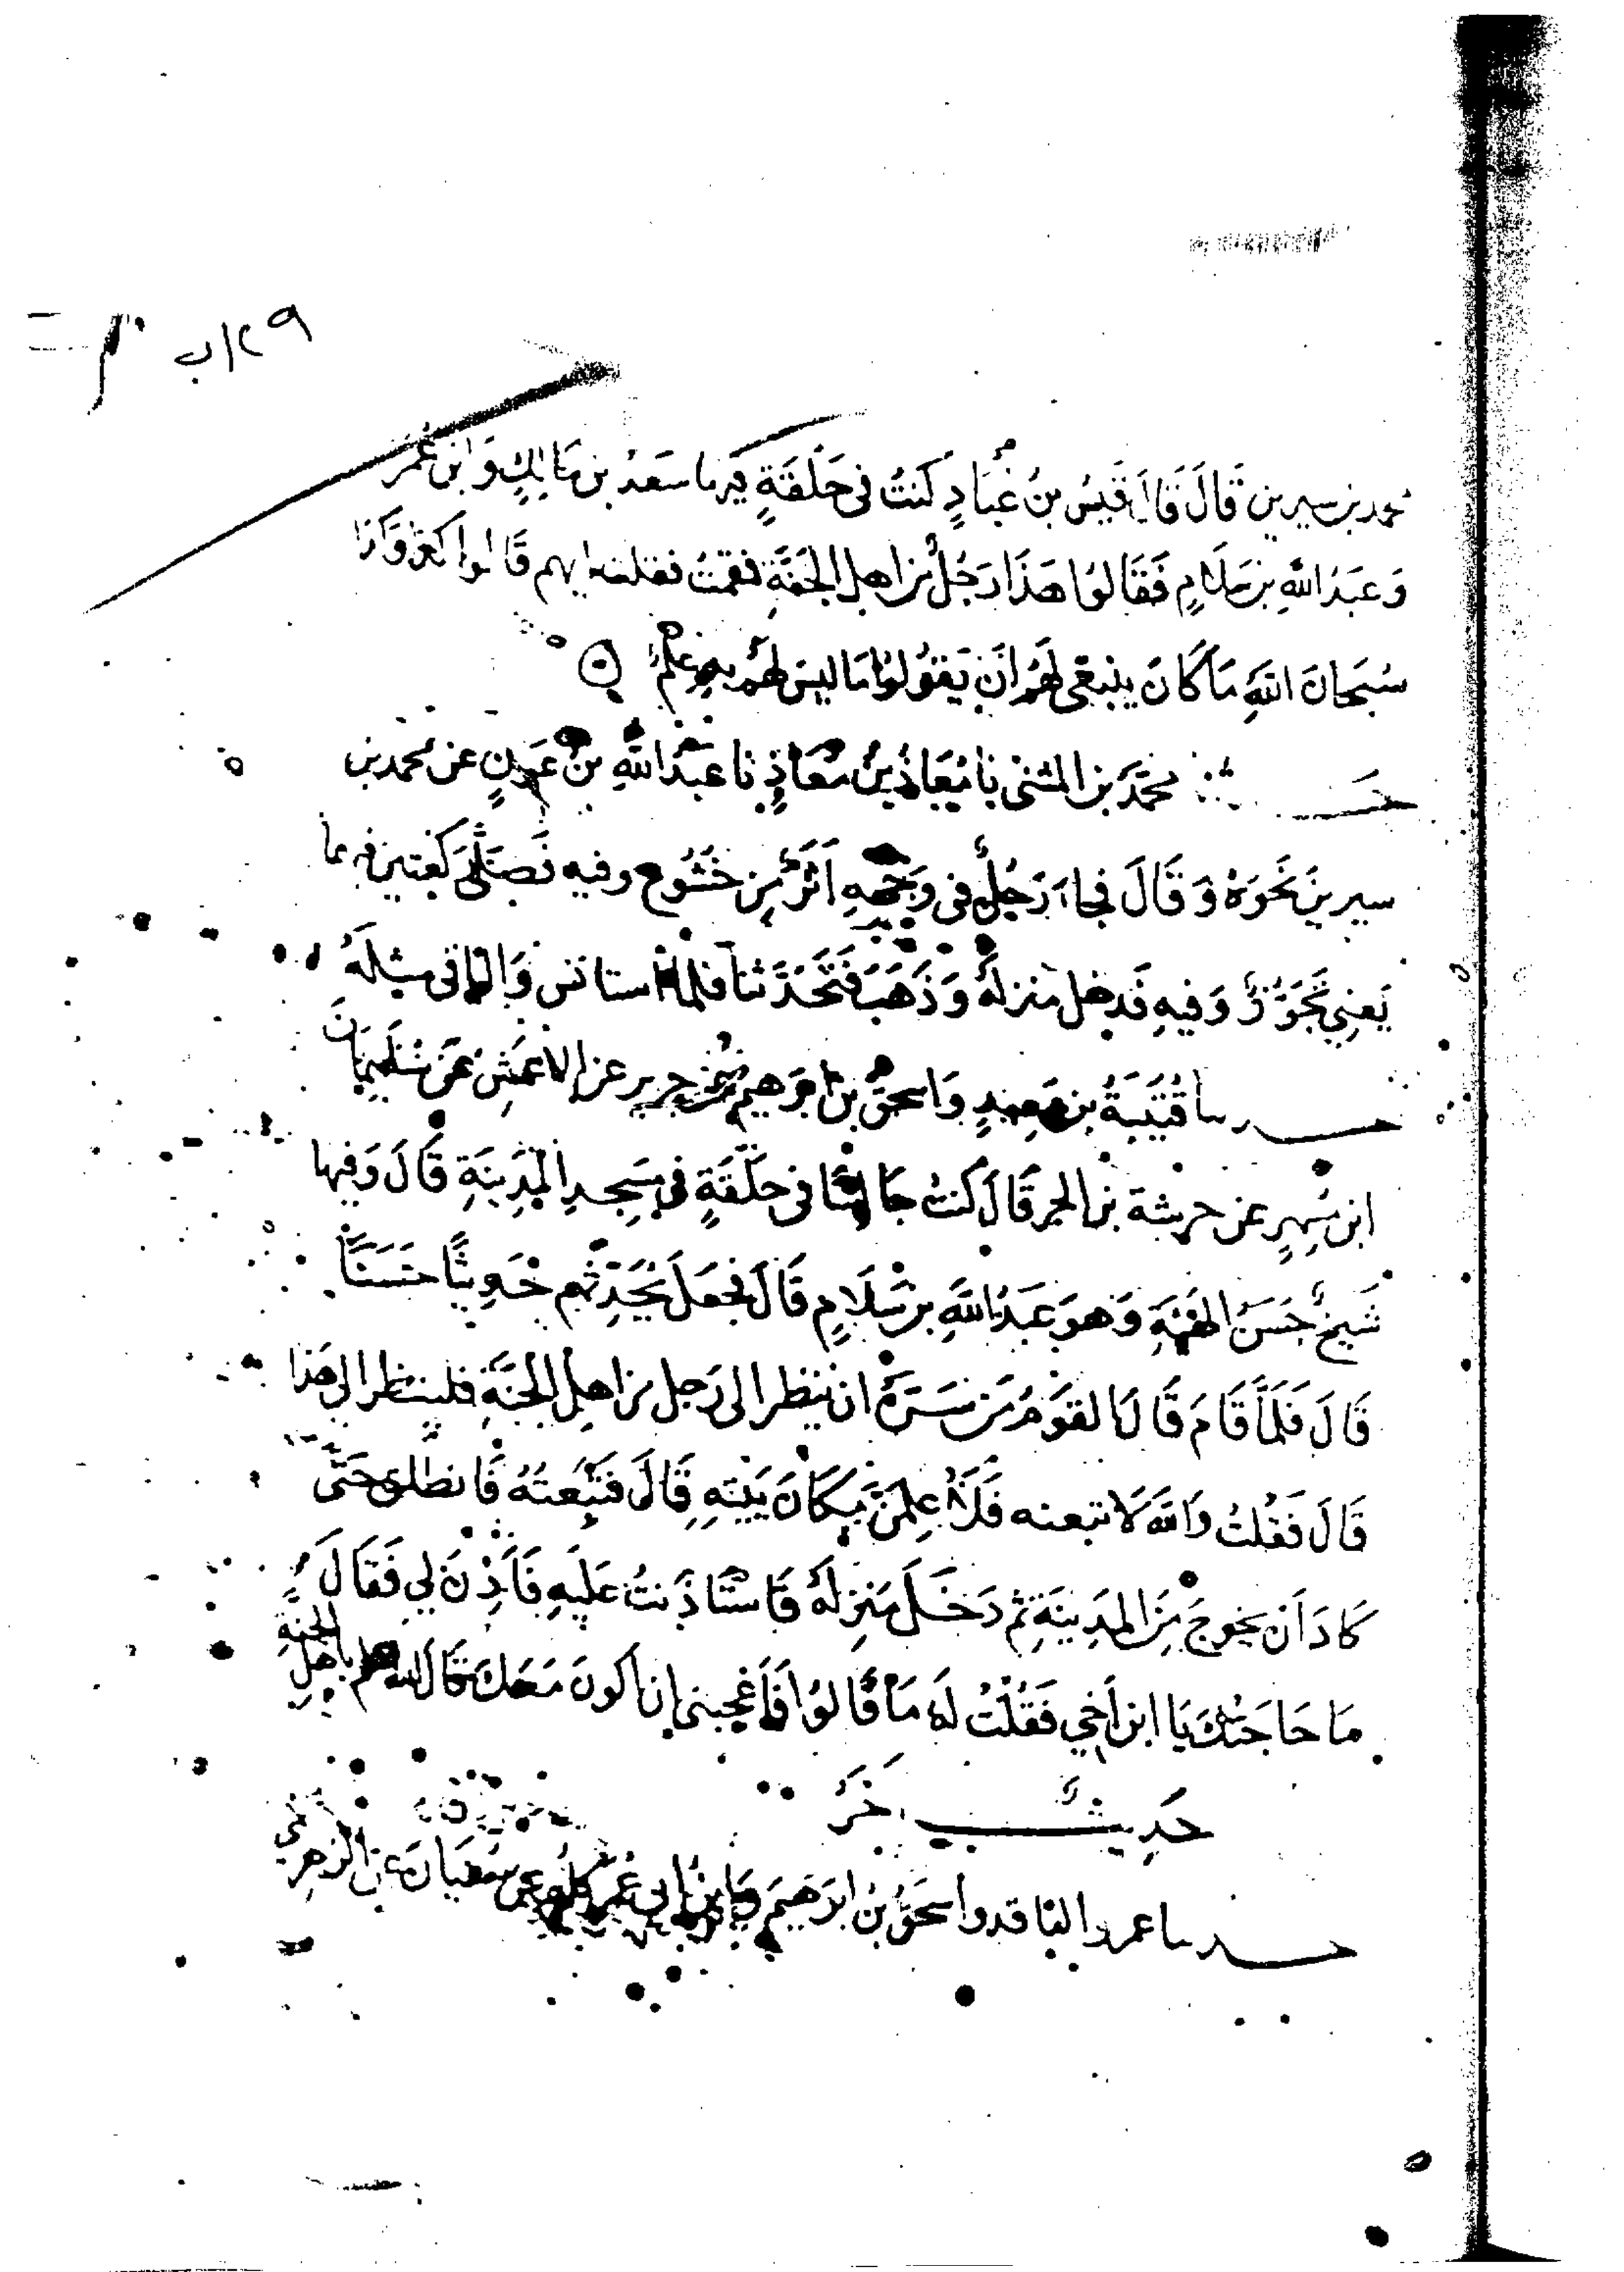 ٢٩/ب
محمد بن سيرين قَالَ قَالَ قَيسُ بنُ عُبَادٍ كُنتُ فى حَلْقَةٍ فيها سَعدُ بن مَالِكٍ وَابن عُمَر
وَعَبدُ اللهِ بن سَلَامٍ فَقَالوُا هَذَا رَجُلٌ من اهل الجَنَّةِ فقمتُ فقلت انهم قَالوا كذا وَكذا
سُبحَانَ اللهِ مَا كَانَ ينبغى لهَم اَن يَقوُلوُا مَا ليس لهُم بهِ عِلمٌ
حـــــ ثنا محمَّد بن المثنى نا مُعَاذُ بنُ مُعَاذٍ نا عَبدُ اللهِ بن عَونٍ عن محمد بن
سيرينَ نَحَوهُ وَقَالَ فجاءَ رَجُلٌ فى وَجهِهِ اَثَرٌ مِن خشُوع وفيه فَصَلَّى رَكعَتين فيهما
يَعنِي تَجَوُّزٌ وَفيهِ فَدخل منزلهُ وَذَهَبَ فَتَحَدَّثنا فلما استانس وَالباقى مثلَهُ
حـــــدسا قُتَيبَةُ بن سعيدٍ وَاسحقُ بن ابرَهيم عن جرير عن الاعمَش عَن سُلَيمَانَ
ابن مُسهِرٍ عن خرشة بن الحر قَالَ كنتُ جَالسًا فى حَلْقَةٍ فى مَسجِدِ المَدِينَةِ قَالَ وَفيها
شَيخٌ حَسَنُ الهَيئَةِ وَهوَ عَبدُ اللهِ بن سَلَامٍ قَالَ فجَعَلَ يُحَدِّثُهم حَدِيثًا حَسَنًا
قَالَ فَلَمَّا قَامَ قَالَ القَومُ مَن سَرَّهُ ان ينظر الى رَجل من اهلِ الجنَّةِ فلينظر الى هَذا
قَالَ فَقُلتُ وَاللهِ لَاتبعنه فَلَاعلمَنَّ مَكَانَ بَيتِهِ قَالَ فَتَبِعتُهُ فَانطلق حَتَّى
كَادَ اَن يخرجَ مِنَ المَدِينَةِ ثم دَخَلَ مَنزِلَهُ فَاستَاذَنتُ عَلَيهِ فَاَذِنَ لِي فَقَالَ
مَا حَاجَتُكَ يَا ابن اَخِي فَقُلْتُ لَهُ مَا قَالوُا فَاَعجبنى ان اكونَ مَعَكَ قَالَ الله اعلم باهلِ الجنَّةِ
حَدِيثٌ اخَرُ
حـــــدسا عمرو الناقد واسحَقُ بنُ ابرَهيمَ وَابنُ ابى عُمَر كلهم عن سُفيَانَ عن الزهرى